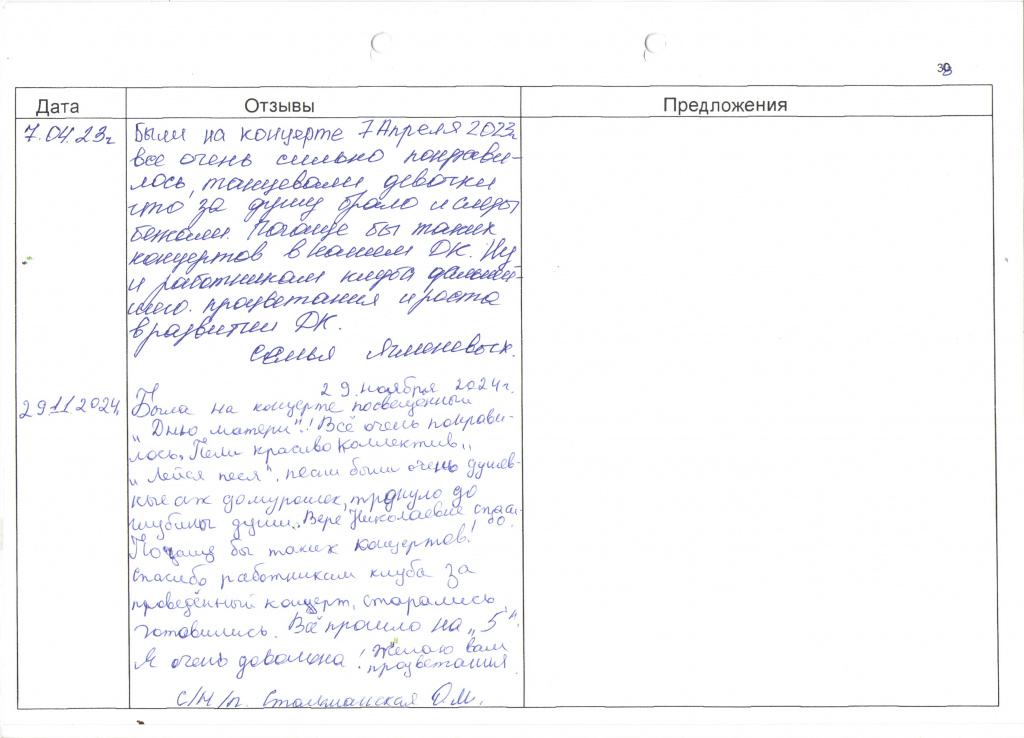 30
Дата Отзывы Предложения
7.04.23г Были на концерте 7 Апреля 2023г
все очень сильно понрави-
лось, танцевали девочки
что за душу брало и слезы
бежали. Почаще бы таких
концертов в нашем ДК. Ну
и работникам клуба дальней-
шего процветания и роста
в развитии ДК.
Семья
29.11.2024. 29 ноября 2024г.
Была на концерте посвещённый
"Дню матери"!! Всё очень понрави-
лось, Пели красиво коллектив,,
"Лейся песя", песни были очень душев-
ные аж до мурашек, тронуло до
глубины души. Вере Николаевне спаси-
бо.
Почаще бы таких концертов!
Спасибо работникам клуба за
проведённый концерт, старались
готовились. Всё прошло на "5".
Я очень довольна! Желаю вам
процветания
с/м/п. Д.М.